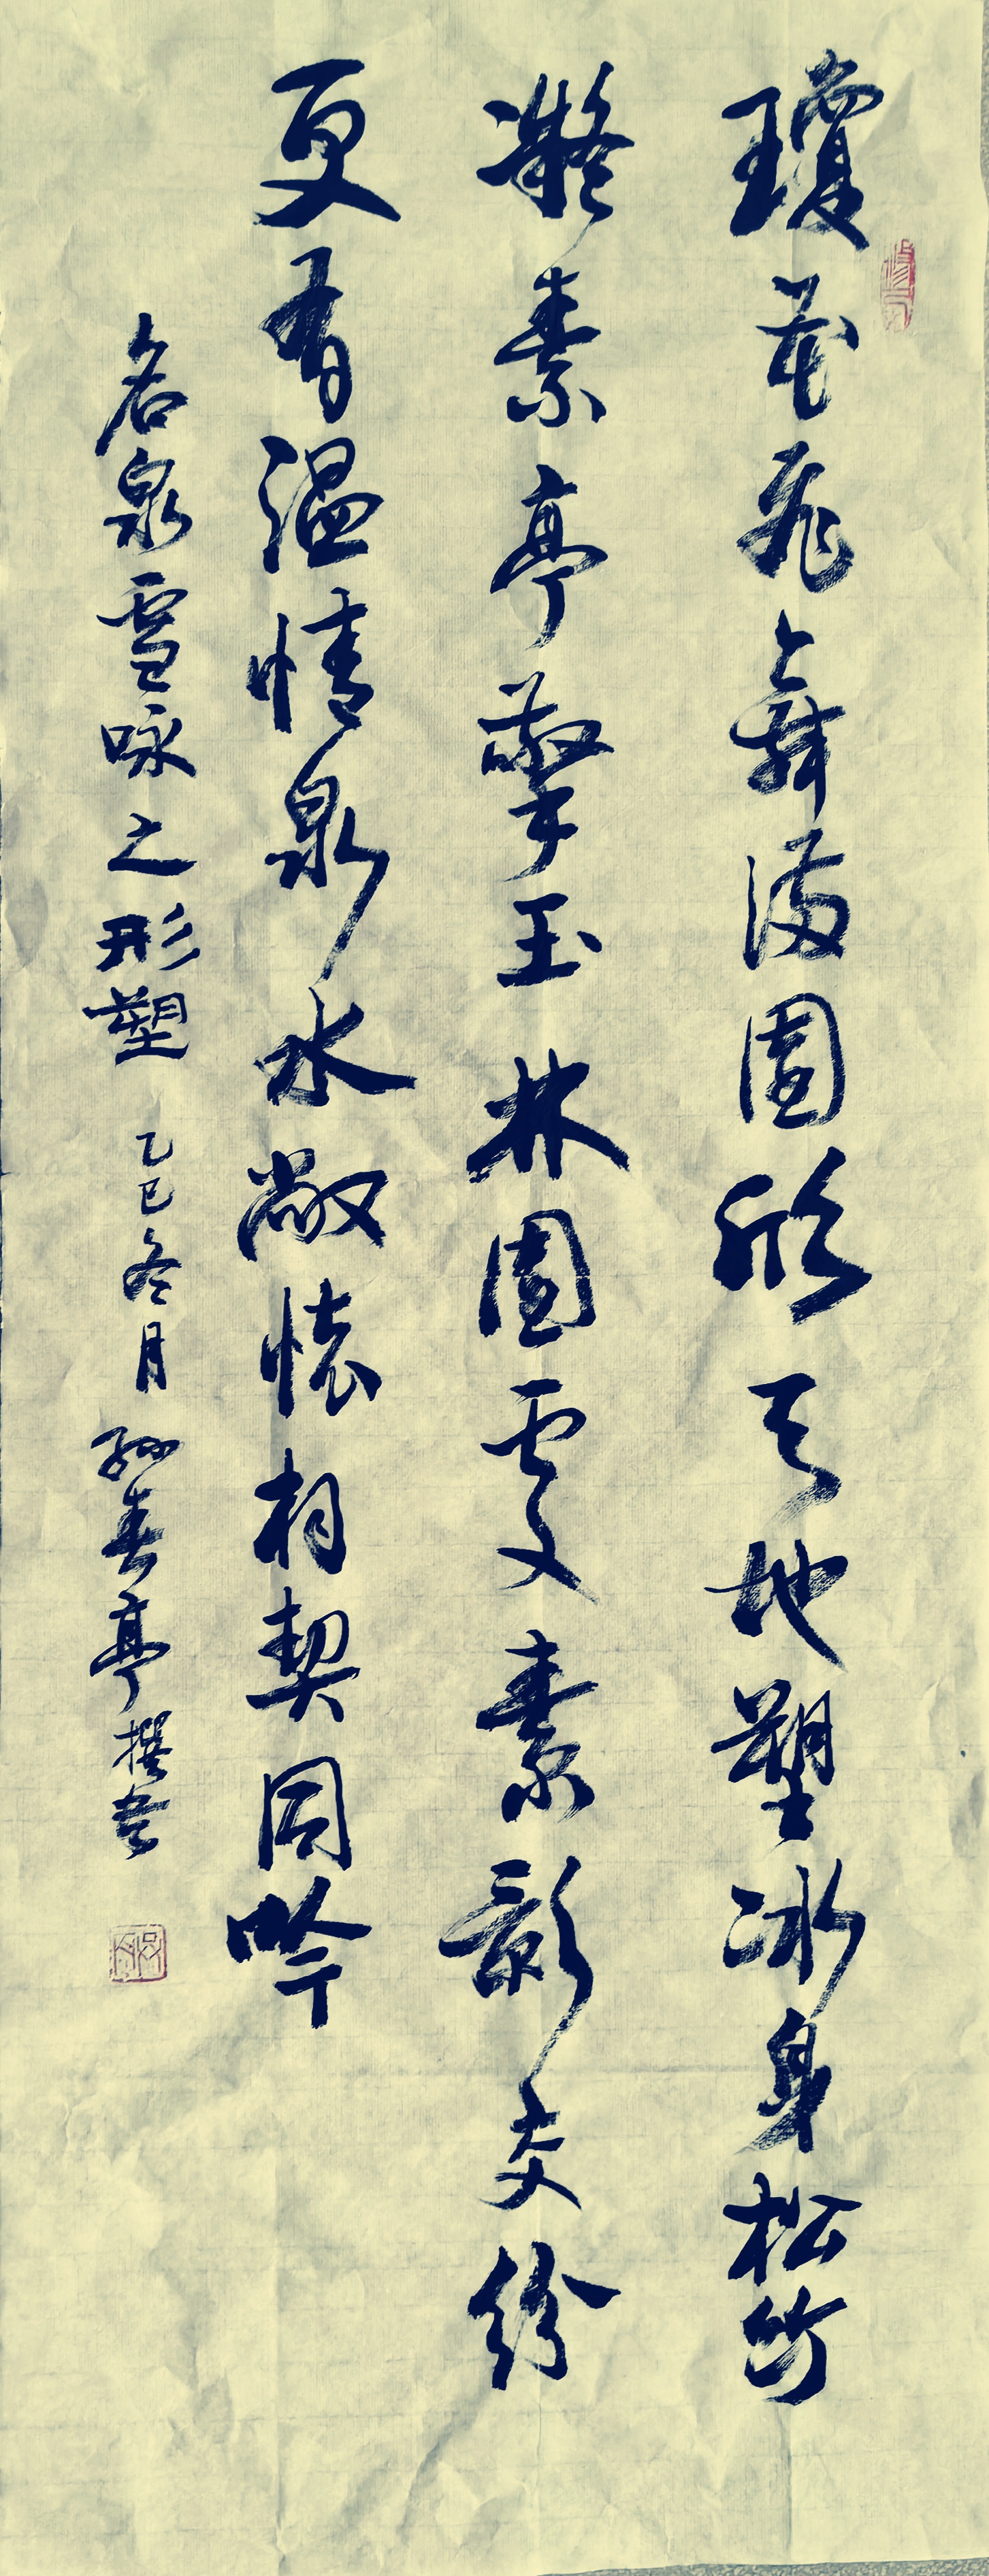 瓊花飛舞滿園欣天地塑冰身松竹
凝素亭擎玉林園雯素影交紛
更有溫情泉水敞懷相契同吟
名泉雪咏之形塑 乙巳冬月 孫春亭撰書